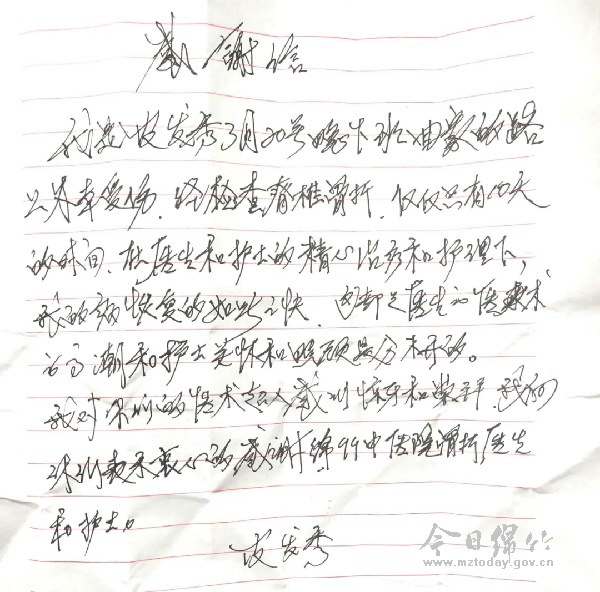 感謝信
我是皮发秀3月20号晚下班回家的路
上不幸受伤.经检查脊椎骨折.仅仅只有10天
的时间.在医生和护士的精心治疗和护理下,
我的病恢复的如此之快.这都是医生的医术
高潮和护士关怀和照顾是分不开的。
我对你们的医术感到惊讶和崇拜 我向
你们表示衷心的感谢绵竹中医院骨折医生
和护士。
皮发秀
今日绵竹
www.mztoday.gov.cn